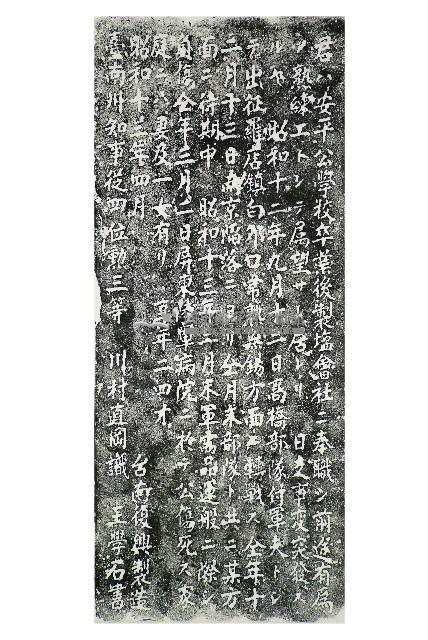 君ハ安平公學校卒業後製塩會社ニ奉職シ前途有爲
ノ熟練工トシテ属望サレ居タリ 日支事変突發ス
ルヤ 昭和十二年九月十二日高橋部隊付軍夫トシ
テ出征羅店鎮白 口常熟無錫方面ニ轉戰ス全年十
二月十三日南京陥落ニヨリ全月末部隊ト共ニ某方
面ニ待期中 昭和十三年二月末軍需品運般ニ際シ
負傷全年三月 日屏東陸軍病院ニ於テ公傷死ス家
庭ニハ妻及一女有リ 享年二四才
昭和十三年四月
臺南州知事從四位勳三等 川村直岡識 王學石書
台南復興製造